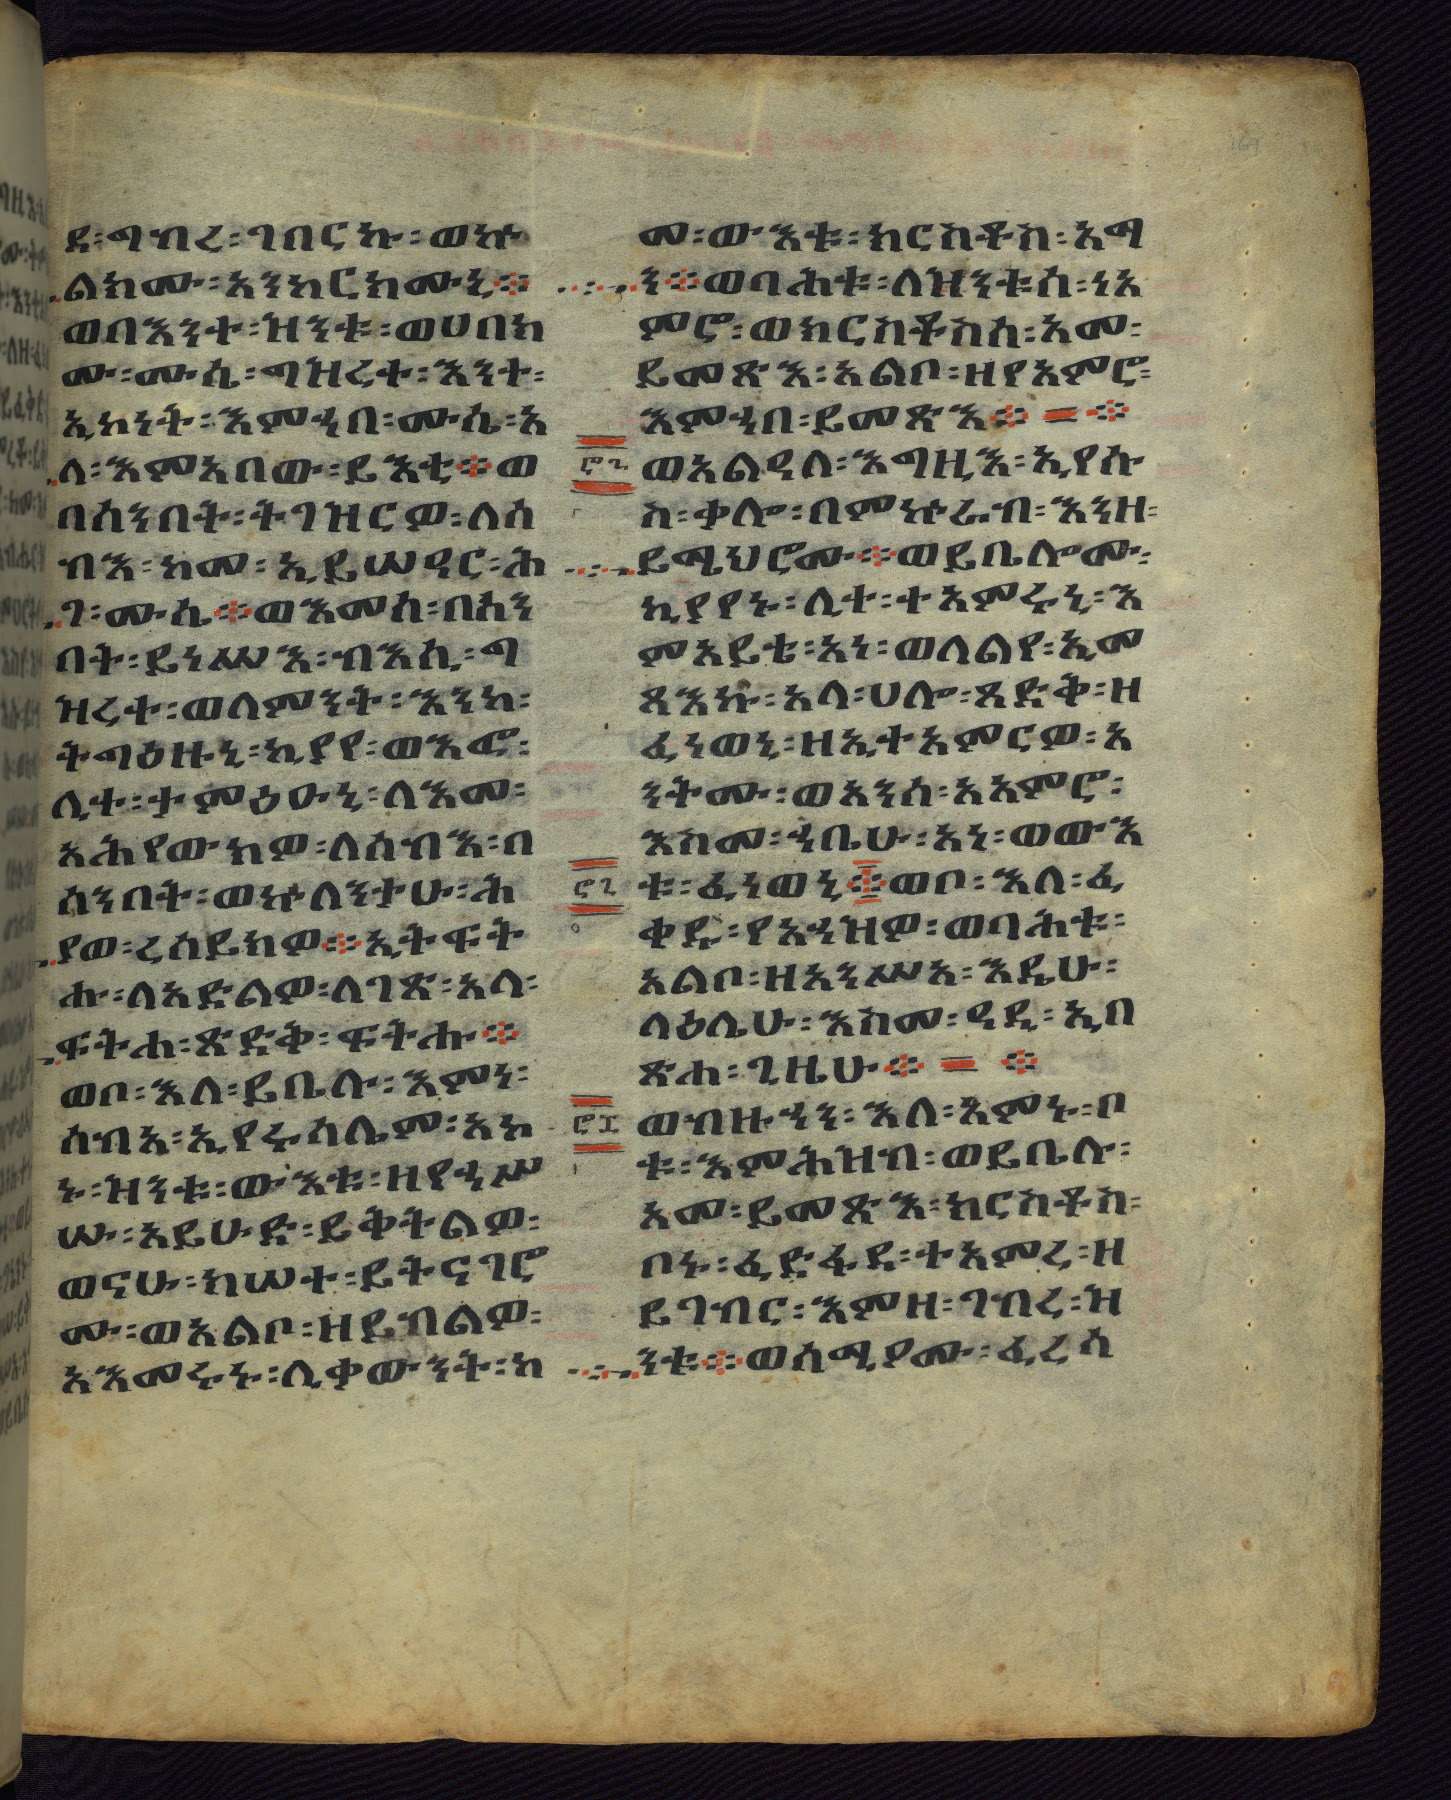 ደ፡ግብረ፡ገበርኩ፡ወኵ
ልክሙ፡አንከርክሙኒ፨
ወበእንተ፡ዝንቱ፡ወሀበክ
ሙ፡ሙሴ፡ግዝረተ፡እንተ፡
ኢኮነት፡እምኀበ፡ሙሴ፡አ
ላ፡እምአበው፡ይእቲ፨ወ
በሰንበት፡ትገዝርዎ፡ለሰ
ብእ፡ከመ፡ኢይሠዓር፡ሕ
ገ፡ሙሴ፨ወእመሰ፡በሰን
በት፡ይነሥእ፡ብእሲ፡ግ
ዝረተ፡ወለምንት፡እንከ፡
ትግዕዙኒ፡ኪያየ፡ወእፎ፡
ሊተ፡ታምዕዑኒ፡ለእመ፡
አሕየውክዎ፡ለሰብእ፡በ
ሰንበት፡ወኵለንታሁ፡ሕ
ያወ፡ረሰይክዎ፨ኢትፍት
ሑ፡ለአድልዎ፡ለገጽ፡አላ፡
ፍትሐ፡ጽድቅ፡ፍትሑ፨
ወቦ፡እለ፡ይቤሉ፡እምነ፡
ሰብአ፡ኢየሩሳሌም፡አኮ
ኑ፡ዝንቱ፡ውእቱ፡ዘየኀሥ
ሡ፡አይሁድ፡ይቅትልዎ፡
ወናሁ፡ከሠተ፡ይትናገሮ
ሙ፡ወአልቦ፡ዘይብልዎ፡
አእመሩኑ፡ሊቃውንት፡ከ
መ፡ውእቱ፡ክርስቶስ፡አማ
ን፨ወባሕቱ፡ለዝንቱሰ፡ነአ
ምሮ፡ወክርስቶስሰ፡አመ፡
ይመጽእ፡አልቦ፡ዘየአምሮ፡
እምኀበ፡ይመጽእ፨ = ፨
ወአልዓለ፡እግዚእ፡ኢየሱ
ስ፡ቃሎ፡በምኵራብ፡እንዘ፡
ይሜህሮሙ፨ወይቤሎሙ፡
ኪያየኑ፡ሊተ፡ተአምሩኒ፡እ
ምአይቴ፡አነ፡ወለልየ፡ኢመ
ጻእኩ፡አላ፡ሀሎ፡ጻድቅ፡ዘ
ፈነወኒ፡ዘኢተአምርዎ፡አ
ንትሙ፡ወአንሰ፡አአምሮ፡
እስመ፡ኀቤሁ፡አነ፡ወውእ
ቱ፡ፈነወኒ፨ወቦ፡እለ፡ፈ
ቀዱ፡የአኀዝዎ፡ወባሕቱ፡
አልቦ፡ዘአንሥአ፡እዴሁ፡
ላዕሌሁ፡እስመ፡ዓዲ፡ኢበ
ጽሐ፡ጊዜሁ፨ = ፨
ወብዙኃን፡እለ፡አምኑ፡ቦ
ቱ፡እምሕዝብ፡ወይቤሉ፡
አመ፡ይመጽእ፡ክርስቶስ፡
ቦኑ፡ፈድፋደ፡ተአምረ፡ዘ
ይገብር፡እምዘ፡ገብረ፡ዝ
ንቱ፨ወሰሚዖሙ፡ፈሪሳ
169